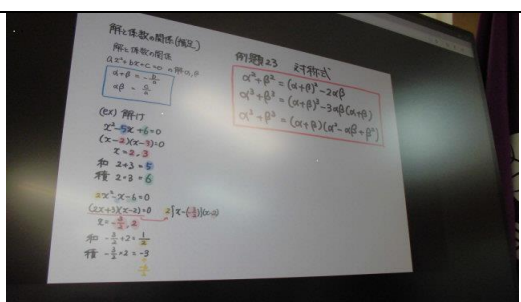 解と係数の関係(補足)
解と係数の関係
ax²+bx+c=0 の解 α, β
α+β = -b/a
αβ = c/a
(ex) 解け
x²-5x+6=0
(x-2)(x-3)=0
x=2,3
和 2+3=5
積 2×3=6
2x²-x-6=0
(2x+3)(x-2)=0 2{x-(-3/2)}(x-2)
x=-3/2, 2
和 -3/2+2=1/2
積 -3/2×2=-3
例題23 対称式
α²+β²=(α+β)²-2αβ
α³+β³=(α+β)³-3αβ(α+β)
α³+β³=(α+β)(α²-αβ+β²)